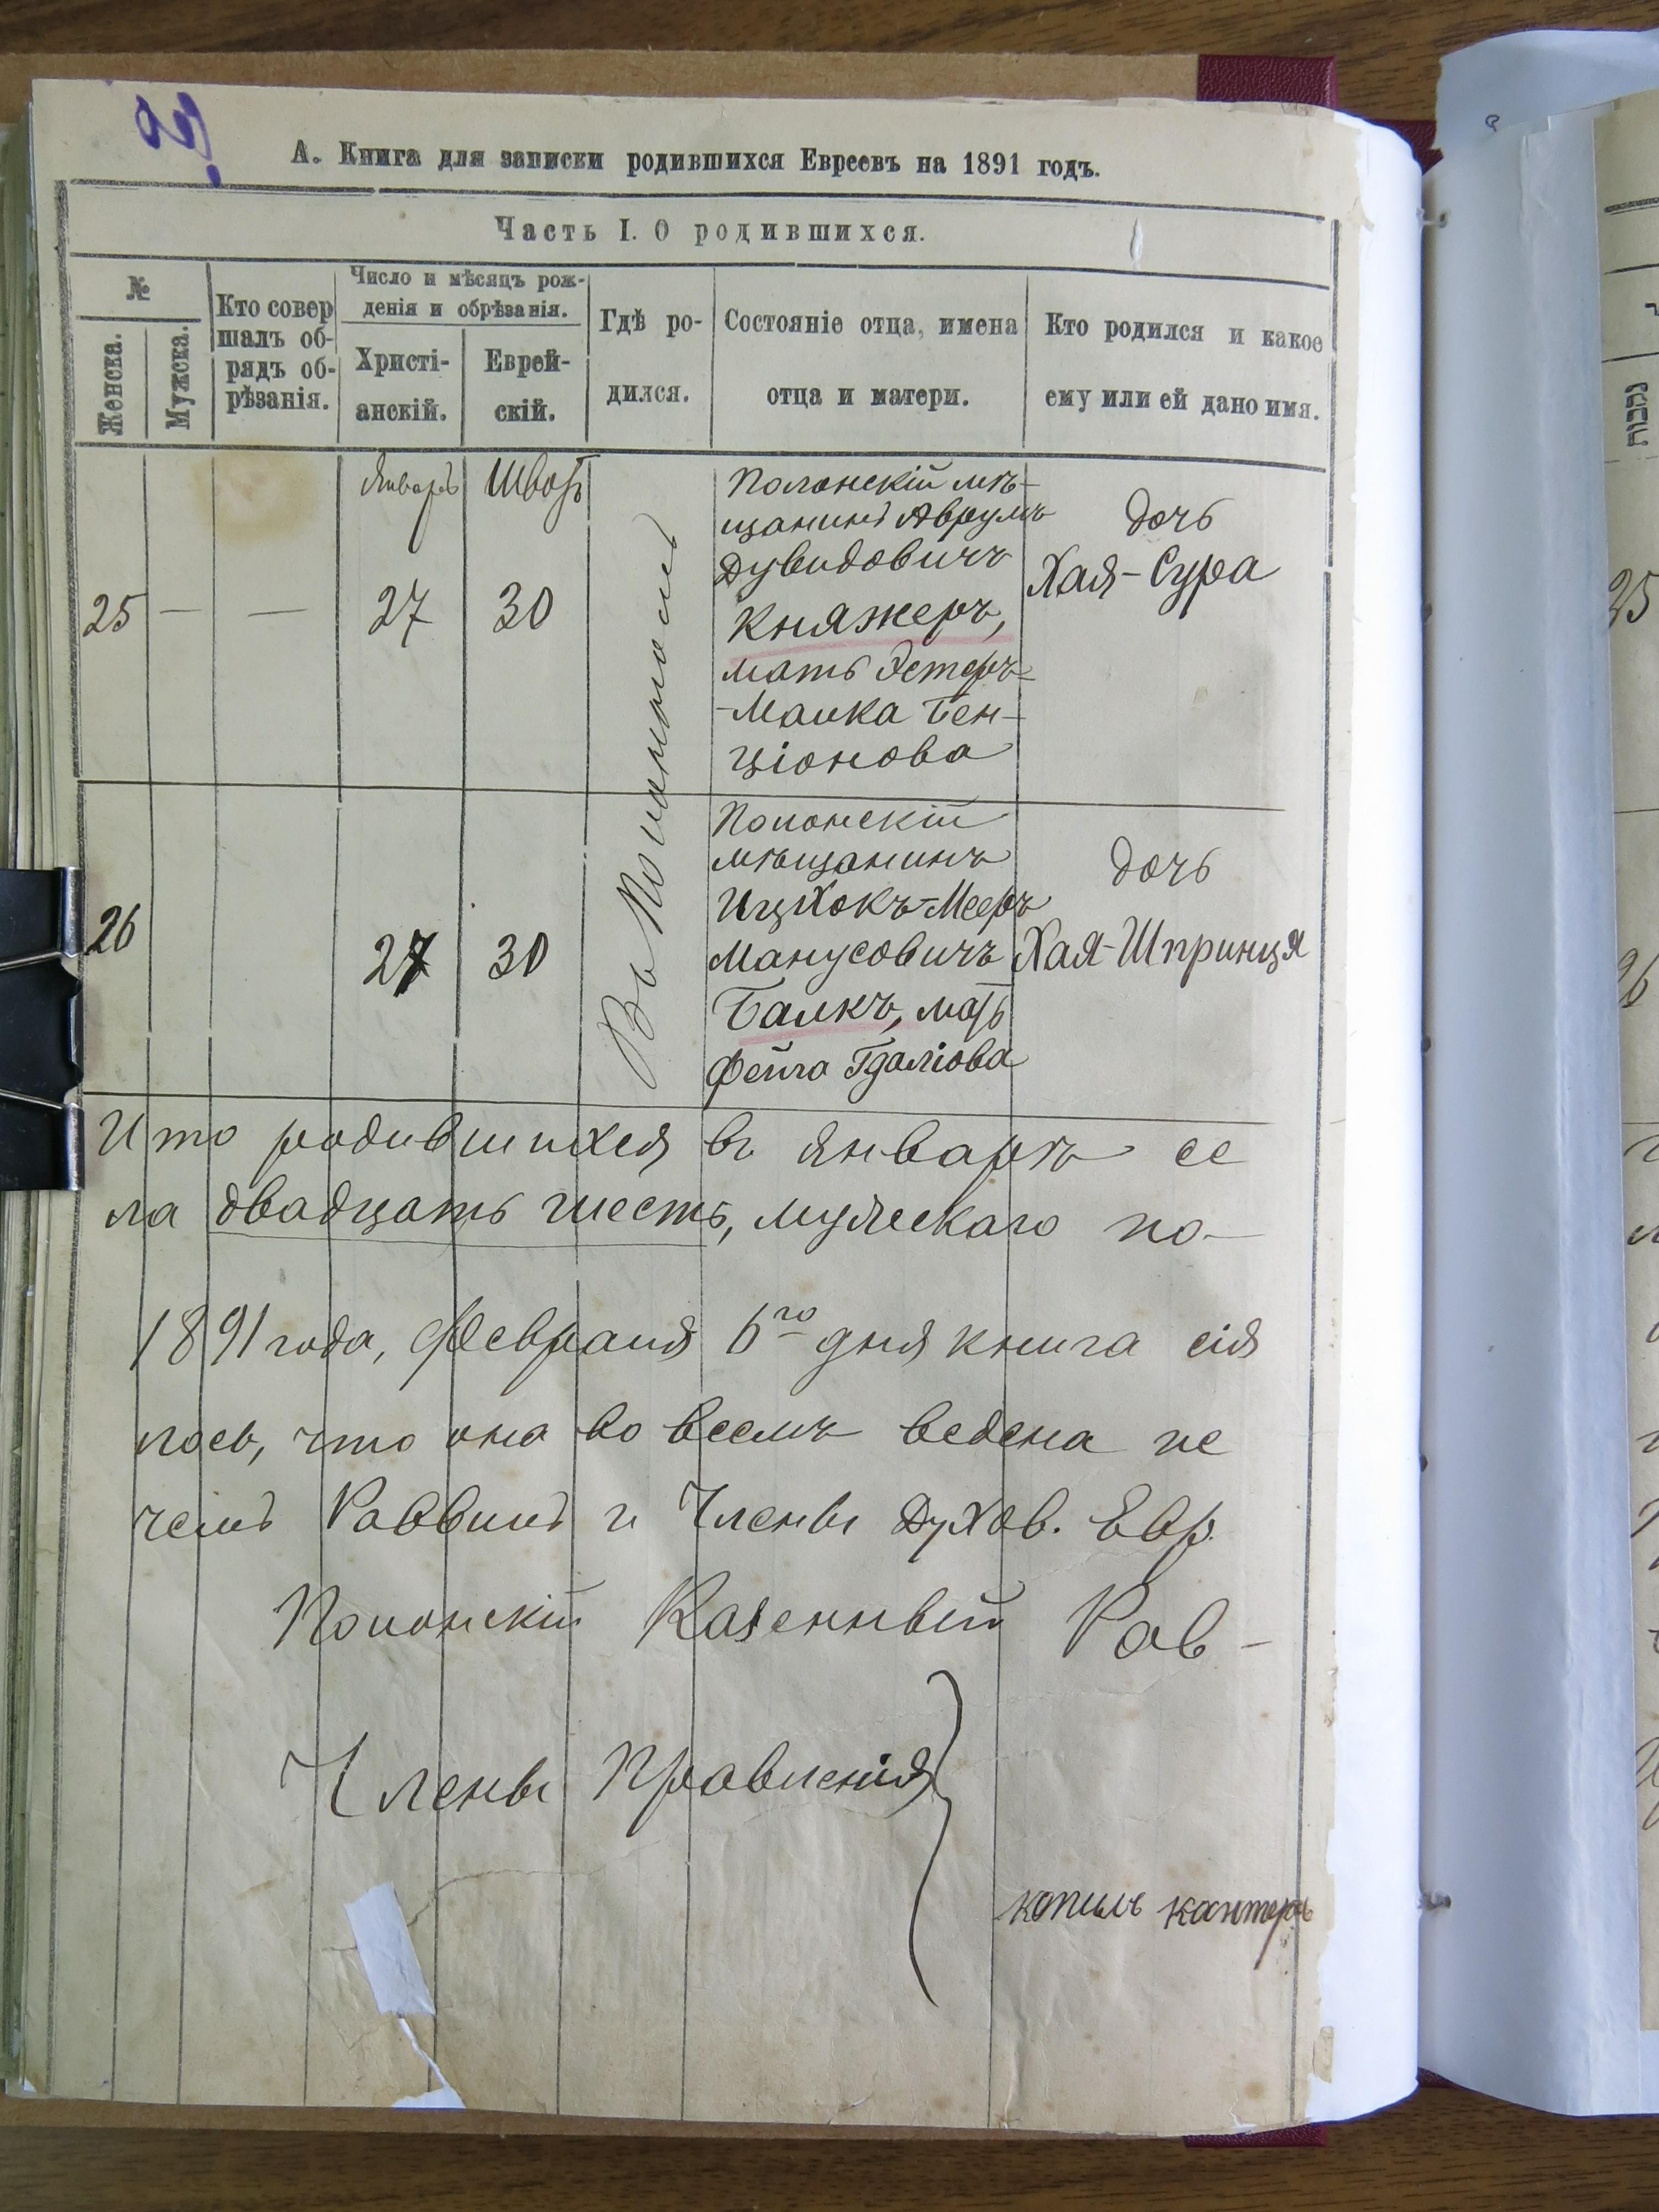 А. Книга для записки родившихся Евреевъ на 1891 годъ.
Часть I. О родившихся.
№
Женска.
Мужска.
Кто совер
шалъ об-
рядъ об-
рѣзанія.
Число и мѣсяцъ рож-
денія и обрѣзанія.
Христі-
анскій.
Еврей-
скій.
Гдѣ ро-
дился.
Состояніе отца, имена
отца и матери.
Кто родился и какое
ему или ей дано имя.
25
—
—
Январь
27
Шватъ
30
Въ Полонномъ
Полонскій мѣ-
щанинъ Аврумъ
Дувидовичъ
Княжеръ,
мать Эстеръ-
-Малка Бен-
ціонова
дочь
Хая-Сура
26
27
30
Полонскій
мѣщанинъ
Ицхокъ-Мееръ
Манусовичъ
Балкъ, мать
Фейга Гдаліова
дочь
Хая-Шпринця
Итого родившихся въ январѣ се
ла двадцать шесть, мужескаго по-
1891 года, Февраля 6го дня книга сія
лось, что она во всемъ ведена не
чемъ Раввинъ и Члены Духов. Евр.
Полонскій Казенный Рав-
Члены Правленія
копилъ кантеръ
25
26